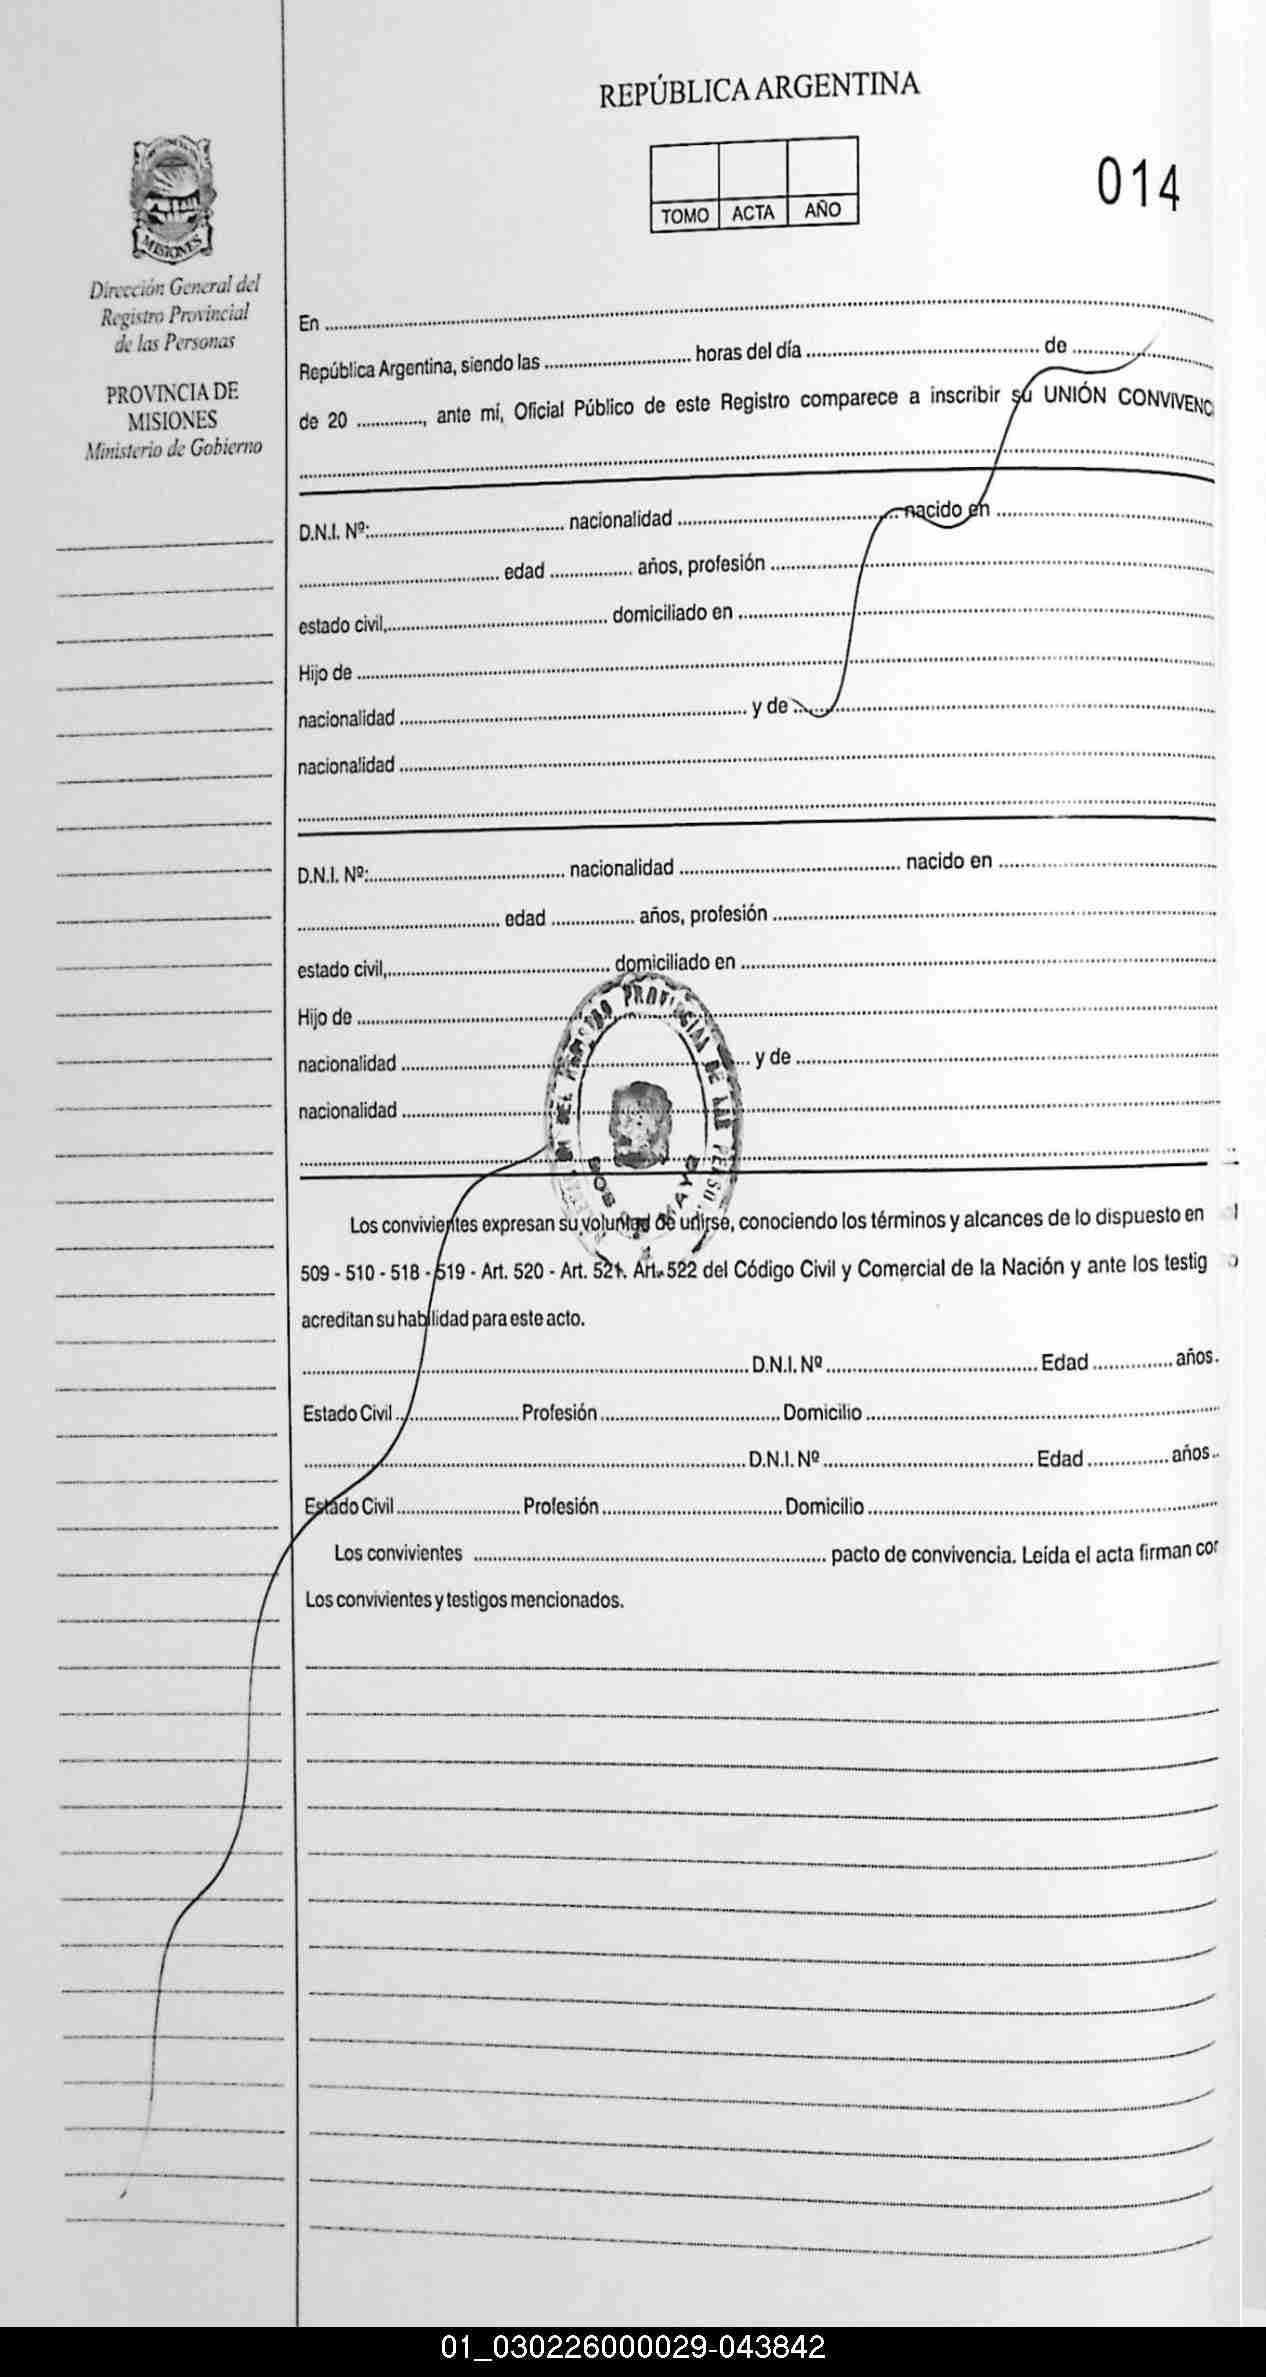 REPÚBLICA ARGENTINA
TOMO ACTA AÑO
014
MISIONES
Dirección General del
Registro Provincial
de las Personas
PROVINCIA DE
MISIONES
Ministerio de Gobierno
En
República Argentina, siendo las ............ horas del día ............ de ............
de 20 ............, ante mí, Oficial Público de este Registro comparece a inscribir su UNIÓN CONVIVENC
D.N.I. Nº:............ nacionalidad ............ nacido en ............
............ edad ............ años, profesión ............
estado civil,............ domiciliado en ............
Hijo de ............
nacionalidad ............ y de ............
nacionalidad ............
D.N.I. Nº:............ nacionalidad ............ nacido en ............
............ edad ............ años, profesión ............
estado civil,............ domiciliado en ............
Hijo de ............
nacionalidad ............ y de ............
nacionalidad ............
DEL REGISTRO PROVINCIAL DE LAS PERSO
Los convivientes expresan su voluntad de unirse, conociendo los términos y alcances de lo dispuesto en
509 - 510 - 518 - 519 - Art. 520 - Art. 521. Art. 522 del Código Civil y Comercial de la Nación y ante los testig
acreditan su habilidad para este acto.
............ D.N.I. Nº ............ Edad ............ años.
Estado Civil ............ Profesión ............ Domicilio ............
............ D.N.I. Nº ............ Edad ............ años..
Estado Civil ............ Profesión ............ Domicilio ............
Los convivientes ............ pacto de convivencia. Leída el acta firman con
Los convivientes y testigos mencionados.
01_030226000029-043842